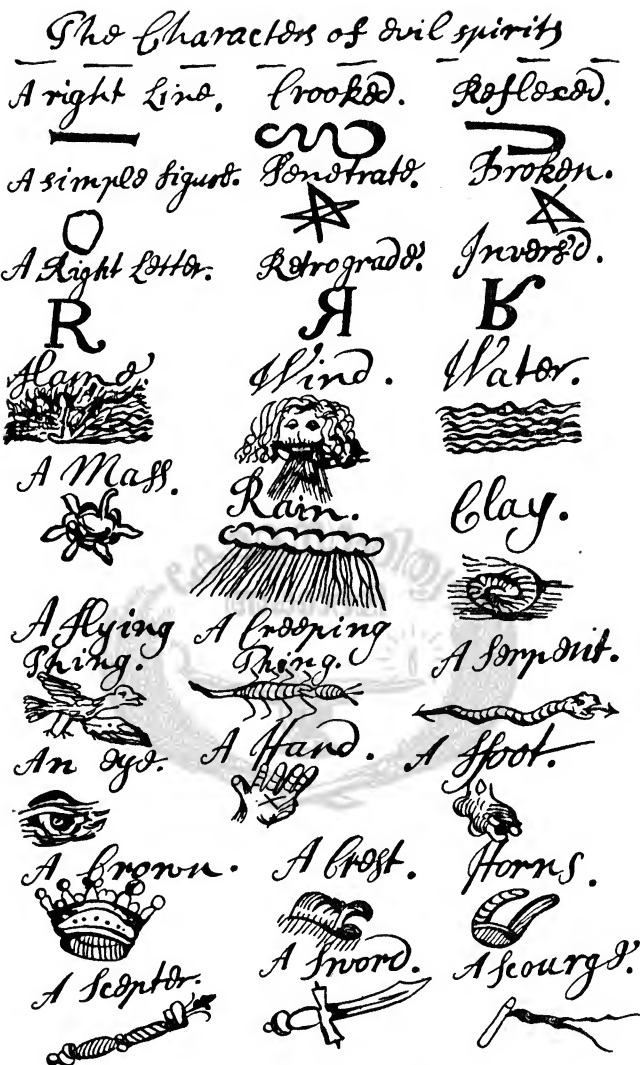 The Characters of evil spirits
A right Line. Crooked. Reflexed.
A simple figure. Penetrate. Broken.
A Right Letter. Retrograde. Invers'd.
R R R
Flame. Wind. Water.
A Mass. Rain. Clay.
A flying Thing. A Creeping Thing. A Serpent.
An eye. A Hand. A ffoot.
A Crown. A Crest. Horns.
A Scepter. A Sword. A Scourge.